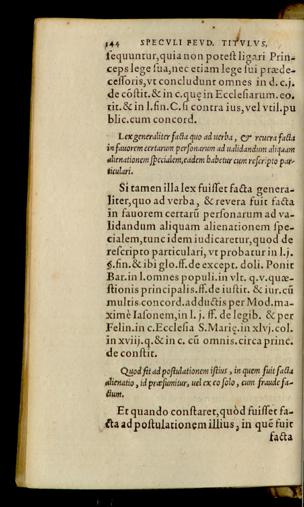 144 SPECVLI FEVD. TITVLVS.
sequuntur, quia non potest ligari Prin-
ceps lege sua, nec etiam lege sui præde-
cessoris, vt concludunt omnes in d. c. j.
de cõstit. & in c. quę in Ecclesiarum. eo.
tit. & in l. fin. C. si contra ius, vel vtil. pu
blic. cum concord.
Lex generaliter facta quo ad uerba, & reuera facta
in fauorem certarum personarum ad ualidandum aliquam
alienationem specialem, eadem habetur cum rescripto par-
ticulari.
Si tamen illa lex fuisset facta genera-
liter, quo ad verba, & reuera fuit facta
in fauorem certarũ personarum ad va-
lidandum aliquam alienationem spe-
cialem, tunc idem iudicaretur, quod de
rescripto particulari, vt probatur in l. j.
§. fin. & ibi glo. ff. de except. doli. Ponit
Bar. in l. omnes populi. in vlt. q. v. quæ-
stionis principalis. ff. de iustit. & iur. cũ
multis concord. adductis per Mod. ma-
ximè Iasonem, in l. j. ff. de legib. & per
Felin. in c. Ecclesia S. Marię. in xlvj. col.
in xviij. q. & in c. cũ omnis. circa princ.
de constit.
Quod sit ad postulationem istius, in quem fuit facta
alienatio, id præsumitur, uel ex eo solo, cum fraude fa-
ctum.
Et quando constaret, quòd fuisset fa-
cta ad postulationem illius, in quẽ fuit
facta